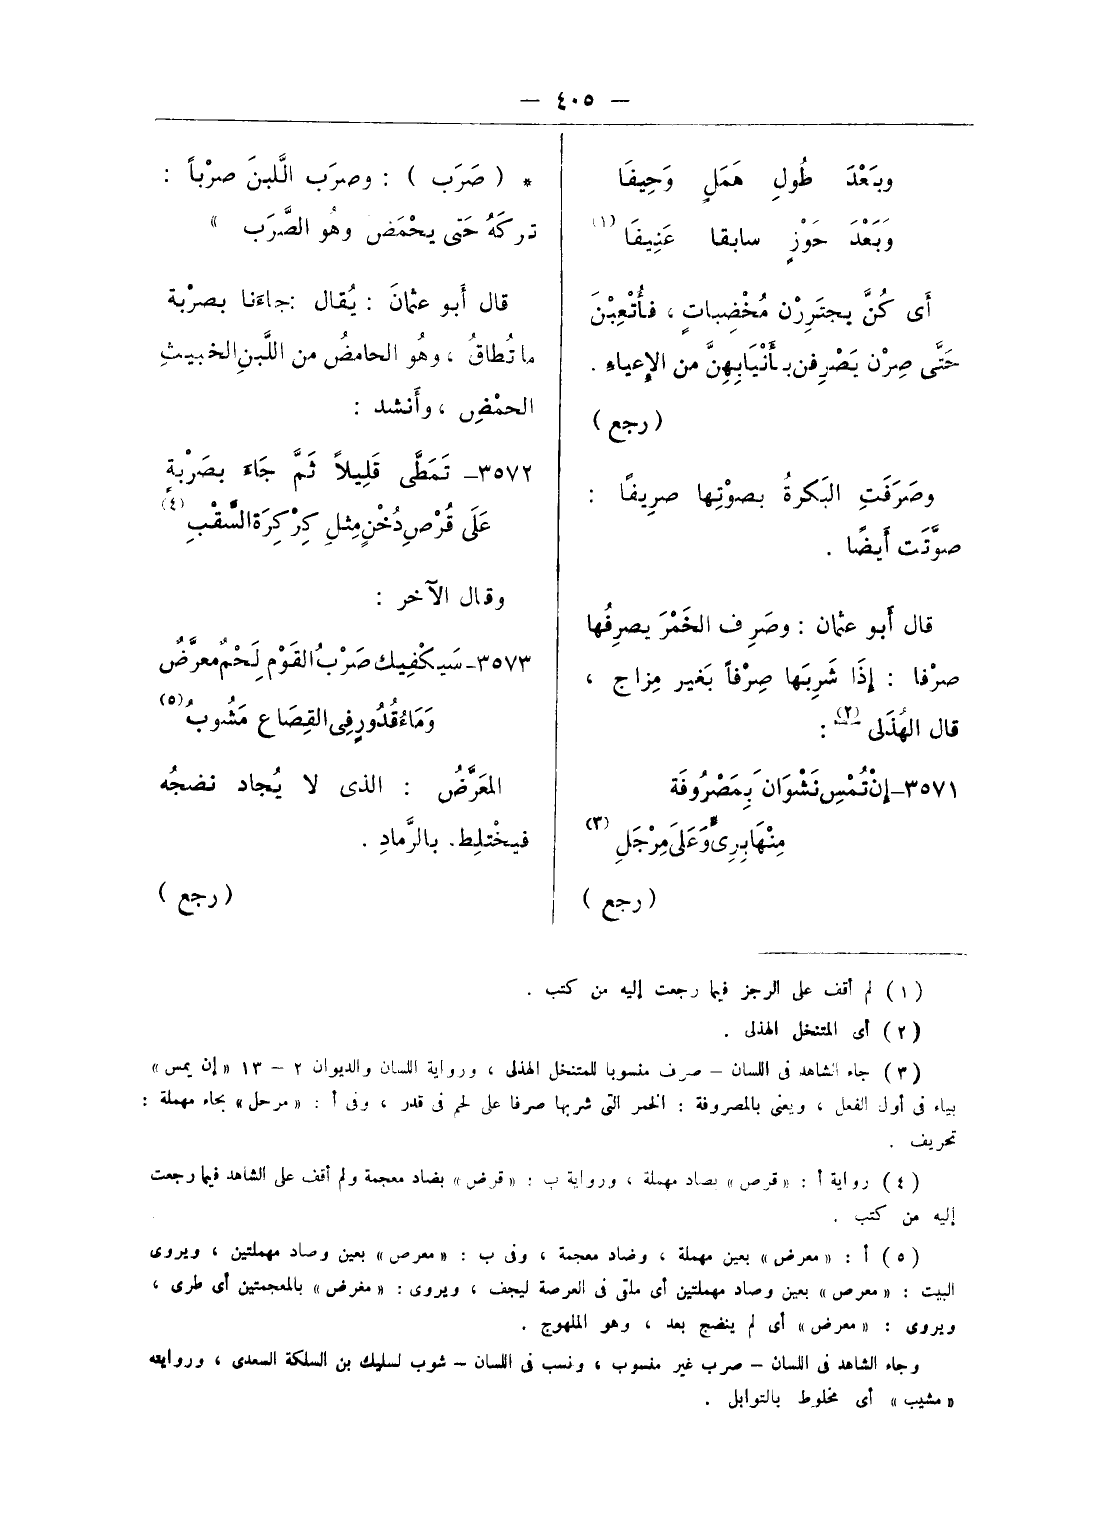 — ٤٠٥ —
وبَعْدَ طُولِ هَمَلٍ وَحِيفَا
وَبَعْدَ حَوْزٍ سابقا عَنِيفَا (١)
أَى كُنَّ يجتَرِرْن مُخْصِباتٍ ، فأُتْعِبْنَ
حَتَّى صِرْن يَصْرِفن بأَنْيَابِهِنَّ من الإِعياءِ .
( رجع )
وصَرَفَتِ البَكرةُ بصوْتِها صريفًا :
صوَّتَت أَيضًا .
قال أَبو عثمان : وصَرِف الخَمْرَ يصرِفُها
صرْفا : إِذَا شَرِبَها صِرْفاً بَغير مِزاج ،
قال الهُذَلى (٢) :
٣٥٧١ــ إِنْ تُمْسِ نَشْوَانَ بِمَصْرُوفَة
مِنْهَا بِرِىٍّ وَعَلَى مِرْجَلِ (٣)
( رجع )
* ( صَرَب ) : وصرَب اللَّبنَ صرْباً :
تركَهُ حَتى يحْمَض وهُو الصَّرَب »
قال أَبو عثمانَ : يُقال : جاءَنا بصرْبة
ما تُطاقُ ، وهُو الحامضُ من اللَّبنِ الخبيثِ
الحمْضِ ، وأَنشد :
٣٥٧٢ــ تَمَطَّى قَلِيلاً ثَمَّ جَاءَ بصَرْبةٍ
عَلَى قُرْصِ دُخْنٍ مِثلِ كِرْكِرَة السَّقْبِ (٤)
وقال الآخر :
٣٥٧٣ــ سَيكْفِيك صَرْبُ القَوْم لَحْمٌ معرَّضٌ
وَمَاءُ قُدُورٍ فِى القِصَاعِ مَشُوبُ (٥)
المعَرَّضُ : الذى لا يُجاد نضجُه
فيخْتلِط. بالرَّمادِ .
( رجع )
( ١ ) لم أقف على الرجز فيما رجعت إليه من كتب .
( ٢ ) أى المتنخل الهذلى .
( ٣ ) جاء الشاهد فى اللسان – صرف منسوبا للمتنخل الهذلى ، ورواية اللسان والديوان ٢ – ١٣ « إن يمس »
بياء فى أول الفعل ، ويعنى بالمصروفة : الخمر التى شربها صرفا على لحم فى قدر ، وفى أ : « مرحل » بحاء مهملة :
تحريف .
( ٤ ) رواية أ : « قرص » بصاد مهملة ، ورواية ب : « قرض » بضاد معجمة ولم أقف على الشاهد فيما رجعت
إليه من كتب .
( ٥ ) أ : « معرض » بعين مهملة ، وضاد معجمة ، وفى ب : « معرص » بعين وصاد مهملتين ، ويروى
البيت : « معرص » بعين وصاد مهملتين أى ملقى فى العرصة ليجف ، ويروى : « مغرض » بالمعجمتين أى طرى ،
ويروى : « معرض » أى لم ينضج بعد ، وهو الملهوج .
وجاء الشاهد فى اللسان – صرب غير منسوب ، ونسب فى اللسان – شوب لسليك بن السلكة السعدى ، وروايته
« مشيب » أى مخلوط بالتوابل .